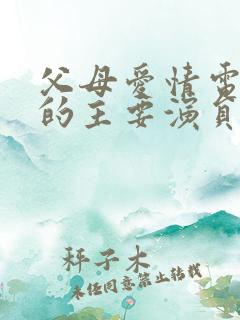 父母爱情電
的主要演員
秤子木
未任同意禁止转载